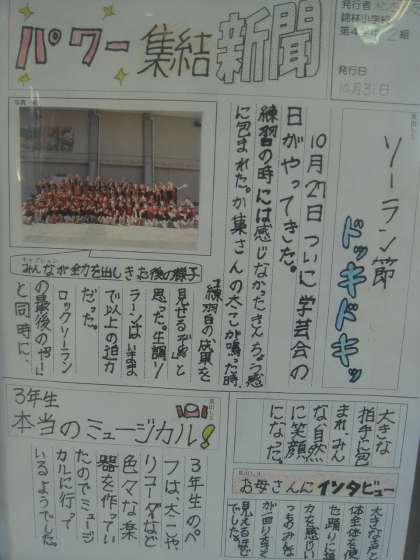 パワー集結新聞
発行者
錦林小学校
第4
組
発行日
10月31日
見出し①
ソーラン節
ドッキドキッ
10月27日ついに学芸会の
日がやってきた。
練習の時には感じなかったきんちょう感
に包まれた。
集さんの太こが鳴った時、
キャプション
みんなが全力を出しきった後の様子
練習の成果を
見せるぞ
と
思った。生調ソ
ーランは
いまま
で以上の迫力
だった。
ロックソーラン
の最後の
と同時に、
大きな
拍手に包
まれ、みん
な、自然
に笑顔
になった。
お母さんにインタビュー
3年生
本当のミュージカル!
3年生のペ
フは、大こや
リコーダなど
色々な楽
器を作ってい
たのでミュージ
カルに行って
いるようでした。